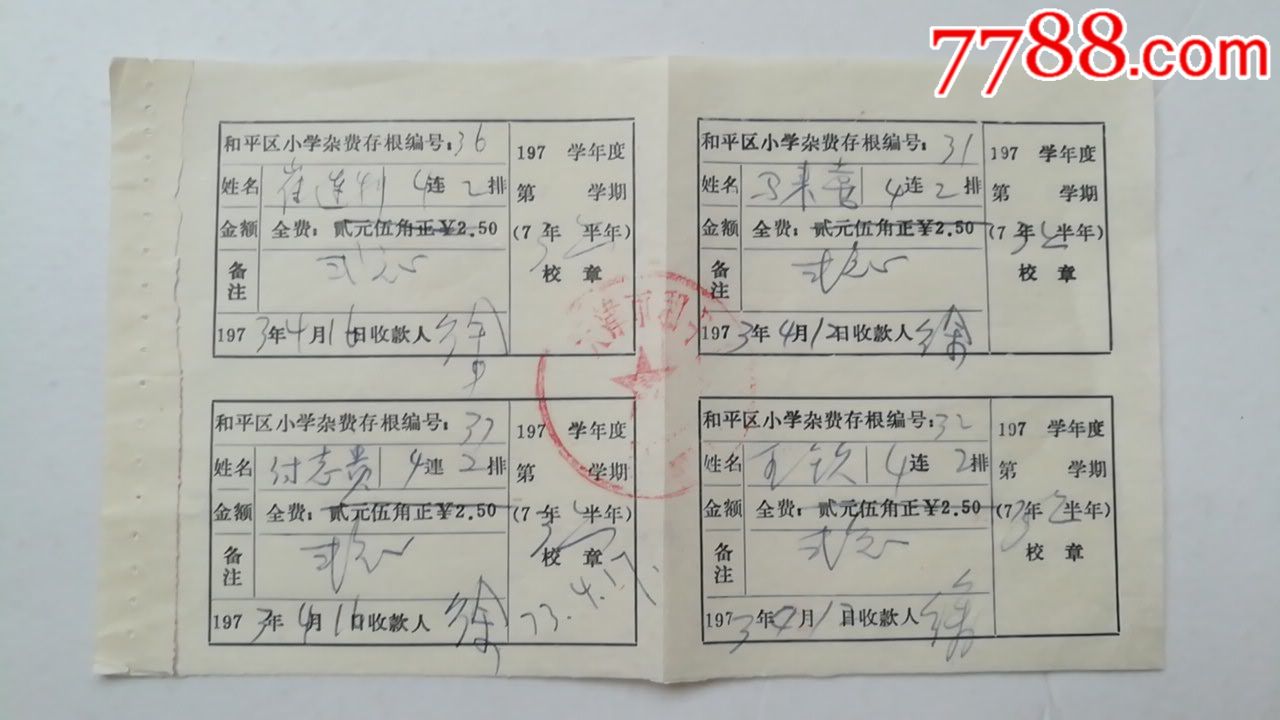 7788.com
和平区小学杂费存根编号:36
197 学年度
姓名 崔连利 4连 2排
第 学期
金额 全费:贰元伍角正¥2.50
(73年 半年)
备注
校章
1973年4月16日收款人 徐
和平区小学杂费存根编号:31
197 学年度
姓名 马来喜 4连 2排
第 学期
金额 全费:贰元伍角正¥2.50
(73年 半年)
备注
校章
1973年4月12日收款人 徐
津市和
和平区小学杂费存根编号:37
197 学年度
姓名 付志贵 4連 2排
第 学期
金额 全费:贰元伍角正¥2.50
(73年 半年)
备注
校章
1973年4月16日收款人 徐
73.4.17.
和平区小学杂费存根编号:32
197 学年度
姓名 王钦 4连 2排
第 学期
金额 全费:贰元伍角正¥2.50
(73年 半年)
备注
校章
1973年4月1日收款人 徐